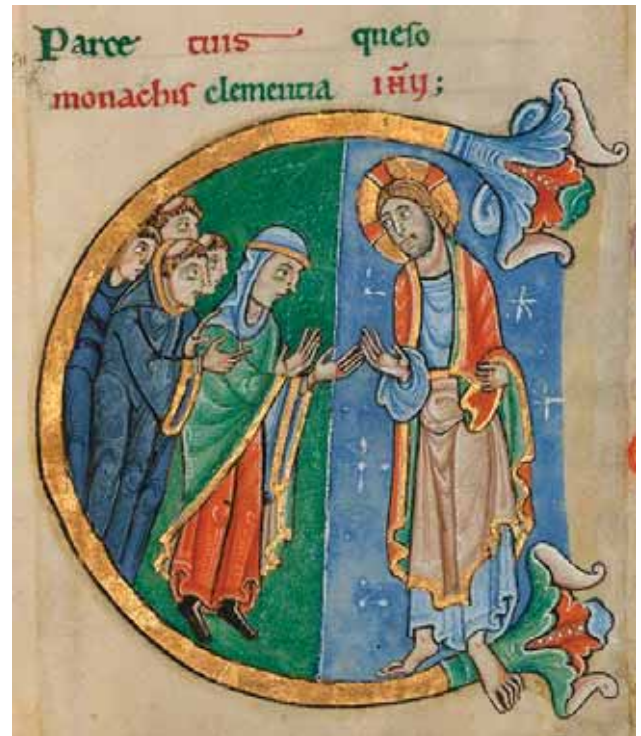 Parce tuis queso
monachis clementia ihu;